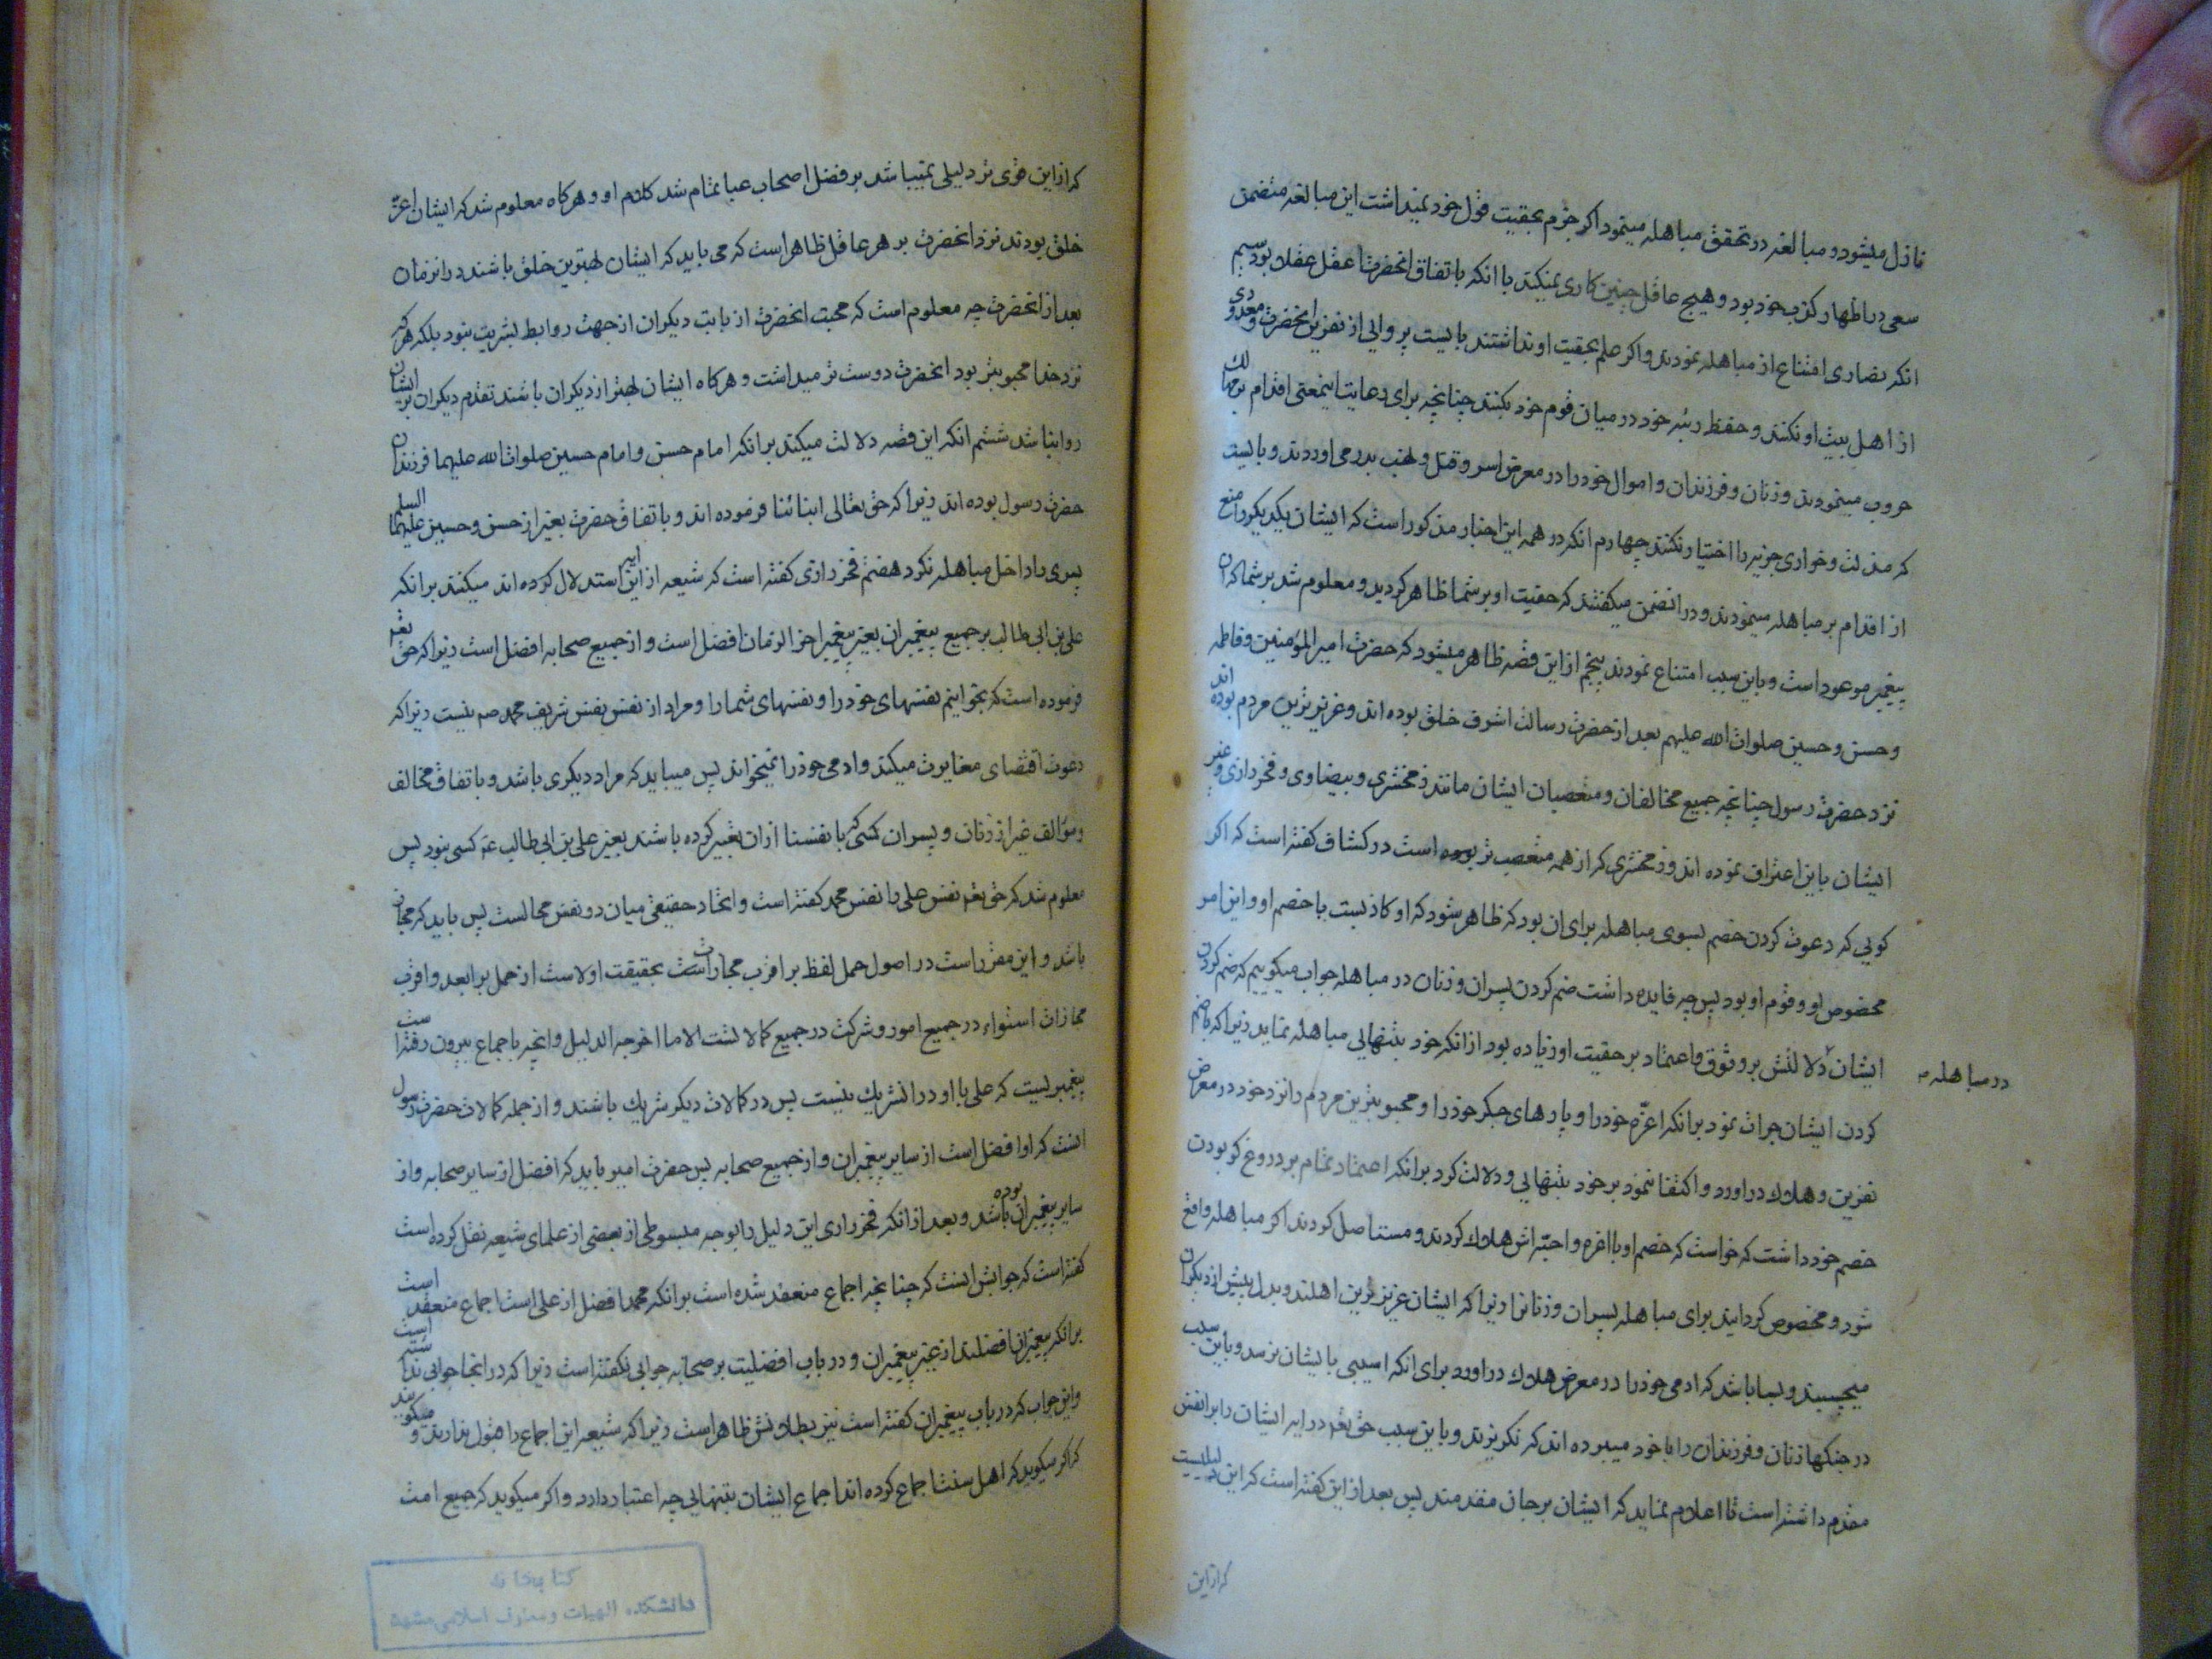 نازل میشود و مبالغه در تحقق مباهله مینمود اگر جزم بحقیت قول خود نمیداشت این مبالغه متضمن
سعی در اظهار کذب خود بود و هیچ عاقل چنین کاری نمیکند با انکه باتفاق انحضرت اعقل عقلا بود سیم
انکه نصاری امتناع از مباهله نمودند و اگر علم بحقیت او نداشتند بایست پروایی از نفرین انحضرت و معدودی
از اهل بیت او نکنند و حفظ رتبه خود در میان قوم خود بکنند چنانچه برای رعایت اینمعنی اقدام بر مهالك
حروب مینمودند و زنان و فرزندان و اموال خود را در معرض اسر و قتل و نهب بدر می اوردند و بایست
که مذلت و خواری جزیه را اختیار نکنند چهارم انکه در همه این اخبار مذکور است که ایشان یکدیگر را منع
از اقدام بر مباهله مینمودند و در انضمن میگفتند که حقیت او بر شما ظاهر گردید و معلوم شد بر شما که ان
پیغمبر موعود است و باین سبب امتناع نمودند پنجم از این قصه ظاهر میشود که حضرت امیر المؤمنین و فاطمه
و حسن و حسین صلوات الله علیهم بعد از حضرت رسالت اشرف خلق بوده اند و عزیزترین مردم بوده اند
نزد حضرت رسول چنانچه جمیع مخالفان و متعصبان ایشان مانند زمخشری و بیضاوی و فخر رازی و غیر
ایشان باین اعتراف نموده اند و زمخشری که از همه متعصب تر بوده است در کشاف گفته است که اگر
گویی که دعوت کردن خصم بسوی مباهله برای ان بود که ظاهر شود که او کاذبست یا خصم او و این امر
مخصوص او و قوم او بود پس چه فایده داشت ضم کردن پسران و زنان در مباهله جواب میگوییم که ضم کردن
ایشان دلالتش بر وثوق و اعتماد بر حقیت او زیاده بود از انکه خود بتنهایی مباهله نماید زیرا که باضم
در مباهله
کردن ایشان جرات نمود بر انکه اعزه خود را و پارهای جگر خود را و محبوبترین مردم را نزد خود در معرض
نفرین و هلاك در اورد و اکتفا ننمود بر خود بتنهایی و دلالت کرد بر انکه اعتماد تمام بر دروغ گو بودن
خصم خود داشت که خواست که خصم او با اعزه و احبه اش هلاك گردند و مستاصل گردند اگر مباهله واقع
شود و مخصوص گردانید برای مباهله پسران و زنانرا زیرا که ایشان عزیزترین اهلند و بدل پیش از دیگران
میچسبند و بسا باشد که ادمی خود را در معرض هلاك در اورد برای انکه اسیبی بایشان نرسد و باین سبب
در جنگها زنان و فرزندان را با خود میبرده اند که نگریزند و باین سبب حق تعم در ایه ایشان را بر انفس
مقدم داشته است تا اعلام نماید که ایشان بر جان مقدمند پس بعد از این گفته است که این دلیلیست
که از این
که از این قوی تر دلیلی نمیباشد بر فضل اصحاب عبا تمام شد کلام او و هرکاه معلوم شد که ایشان اعز
خلق بودند نزد انحضرت بر هر عاقل ظاهر است که می باید که ایشان بهترین خلق باشند در انزمان
بعد از انحضرت چه معلوم است که محبت انحضرت از بابت دیگران از جهت روابط بشریت نبود بلکه هرکه
نزد خدا محبوبتر بود انحضرت دوست تر میداشت و هرکاه ایشان بهتر از دیگران باشند تقدم دیگران بر ایشان
روا نباشد ششم انکه این قصه دلالت میکند بر انکه امام حسن و امام حسین صلوات الله علیهما فرزندان
حضرت رسول بوده اند زیرا که حق تعالی ابنائنا فرموده اند و باتفاق حضرت بغیر از حسن و حسین علیهما السلم
پسری را داخل مباهله نکرد هفتم فخر رازی گفته است که شیعه از این ایه استدلال کرده اند میکنند بر انکه
علی بن ابی طالب بر جمیع پیغمبران بغیر پیغمبر اخر الزمان افضل است و از جمیع صحابه افضل است زیرا که حق تعم
فرموده است که بخوانیم نفسهای خود را و نفسهای شما را و مراد از نفس نفس شریف محمد صم نیست زیرا که
دعوت اقتضای مغایرت میکند و ادمی خود را نمیخواند پس میباید که مراد دیگری باشد و باتفاق مخالف
و مؤالف غیر از زنان و پسران کسی که بانفسنا از ان تعبیر کرده باشند بغیر علی بن ابی طالب عم کسی نبود پس
معلوم شد که حق تعم نفس علی را نفس محمد گفته است و اتحاد حقیقی میان دو نفس محالست پس باید که مجاز
باشد و این مقرر است در اصول حمل لفظ بر اقرب مجازات بحقیقت اولاست از حمل بر ابعد و اقرب
مجازات استواء در جمیع امور و شرکت در جمیع کمالاتست الا ما اخرجه الدلیل و انچه باجماع بیرون رفته است
پیغمبریست که علی با او در ان شریك نیست پس در کمالات دیگر شریك باشند و از جمله کمالات حضرت رسول
انست که او افضل است از سایر پیغمبران و از جمیع صحابه پس حضرت امیر باید که افضل از سایر صحابه و از
سایر پیغمبران بوده باشد و بعد از انکه فخر رازی این دلیل را بوجه مبسوطی از بعضی از علمای شیعه نقل کرده است
گفته است که جوابش انست که چنانچه اجماع منعقد شده است بر انکه محمد افضل از علی است اجماع منعقد است
بر انکه پیغمبران افضلند از غیر پیغمبران و در باب افضلیت بر صحابه جوابی نگفته است زیرا که در انجا جوابی نداشته است
و این جواب که در باب پیغمبران گفته است نیز بطلانش ظاهر است زیرا که شیعه این اجماع را قبول ندارند و میگویند
که اگر میگوید که اهل سنت اجماع کرده اند اجماع ایشان بتنهایی چه اعتبار دارد و اگر میگوید که جمیع امت
کتابخانه
دانشکده الهیات و معارف اسلامی مشهد